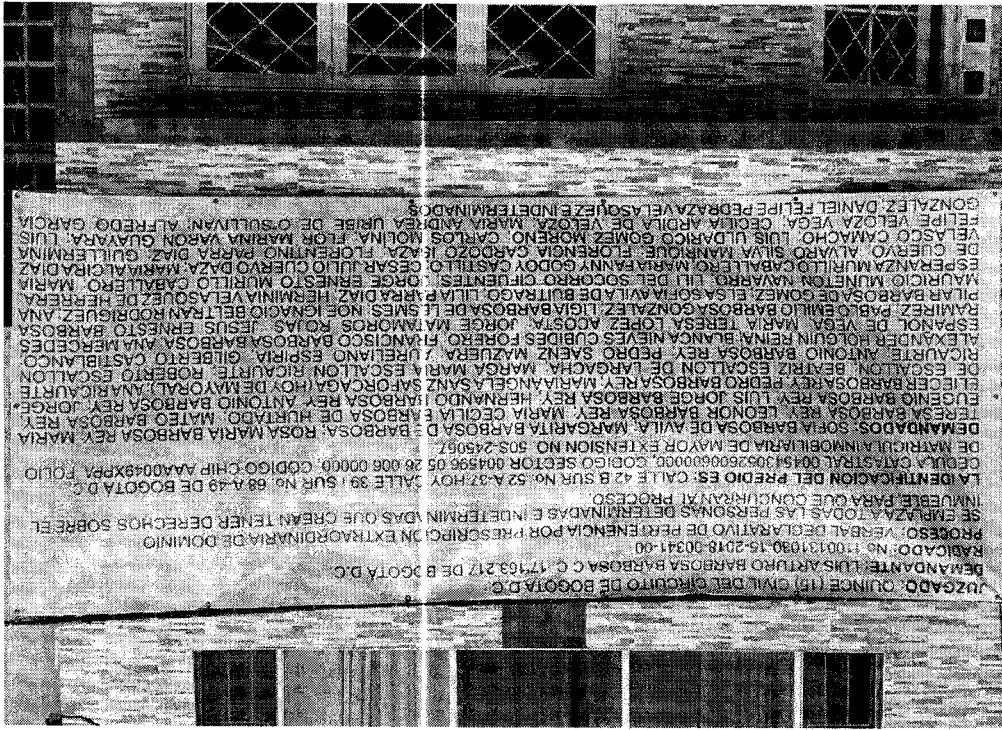 JUZGADO: QUINCE (15) CIVIL DEL CIRCUITO DE BOGOTA D.C
DEMANDANTE: LUIS ARTURO BARBOSA BARBOSA C.C. 17'163.217 DE BOGOTÁ D.C.
RADICADO: No. 110013103015-2018-00341-00
PROCESO: VERBAL DECLARATIVO DE PERTENENCIA POR PRESCRIPCION EXTRAORDINARIA DE DOMINIO
SE EMPLAZA A TODAS LAS PERSONAS DETERMINADAS E INDETERMINADAS QUE CREAN TENER DERECHOS SOBRE EL
INMUEBLE, PARA QUE CONCURRAN AL PROCESO.
LA IDENTIFICACION DEL PREDIO ES: CALLE 42 B SUR No. 52-A-37 HOY CALLE 39 SUR No. 68-A-49 DE BOGOTA D.C.
CEDULA CATASTRAL CODIGO SECTOR 004596 05 26 006 00000, CODIGO CHIP AAA0049XPPA, FOLIO
DE MATRICULA INMOBILIARIA DE MAYOR EXTENSION NO. 50S-245057
DEMANDADOS: SOFIA BARBOSA DE AVILA; MARGARITA BARBOSA DE BARBOSA; ROSA MARIA BARBOSA REY, MARIA
TERESA BARBOSA REY, LEONOR BARBOSA REY, MARIA CECILIA BARBOSA DE HURTADO, MATEO BARBOSA REY,
EUGENIO BARBOSA REY, LUIS JORGE BARBOSA REY, HERNANDO BARBOSA REY, ANTONIO BARBOSA REY, JORGE
ELIECER BARBOSA REY, PEDRO BARBOSA REY, MARIA ANGELA SANZ SAPORCAGA (HOY DE MAYORAL), ANA RICAURTE
DE ESCALLON, BEATRIZ ESCALLON DE LARGACHA, MARGA MARIA ESCALLON RICAURTE, ROBERTO ESCALLON
RICAURTE, ANTONIO BARBOSA REY, PEDRO SAENZ MAZUERA, AURELIANO ESPIRIA, GILBERTO CASTIBLANCO,
ALEXANDER HOLGUIN REINA, BLANCA NIEVES CUBIDES FORERO, FRANCISCO BARBOSA BARBOSA, ANA MERCEDES
ESPAÑOL DE VEGA, MARIA TERESA LOPEZ ACOSTA, JORGE MATAMOROS ROJAS, JESUS ERNESTO BARBOSA
RAMIREZ, PABLO EMILIO BARBOSA GONZALEZ, LIGIA BARBOSA DE LESMES, NOE IGNACIO BELTRAN RODRIGUEZ, ANA
PILAR BARBOSA DE GOMEZ, ELSA SOFIA AVILA DE BUITRAGO, LILIA PARRA DIAZ, HERMINIA VELASQUEZ DE HERRERA,
MAURICIO MUNETON NAVARRO, LILI DEL SOCORRO CIFUENTES, JORGE ERNESTO MURILLO CABALLERO, MARIA
ESPERANZA MURILLO CABALLERO, MARIA FANNY GODOY CASTILLO, CESAR JULIO CUERVO DAZA, MARIA ALCIRA DIAZ
DE CUERVO, ALVARO SILVA MANRIQUE, FLORENCIA CARDOZO ISAZA, FLORENTINO PARRA DIAZ, GUILLERMINA
VELASCO CAMACHO, LUIS ULDARICO GOMEZ MORENO, CARLOS MOLINA, FLOR MARINA VARON GUAYARA, LUIS
FELIPE VELOZA VEGA, CECILIA ARDILA DE VELOZA, MARIA ANDREA URIBE DE O'SULLIVAN, ALFREDO GARCIA
GONZALEZ, DANIEL FELIPE PEDRAZA VELASQUEZ E INDETERMINADOS